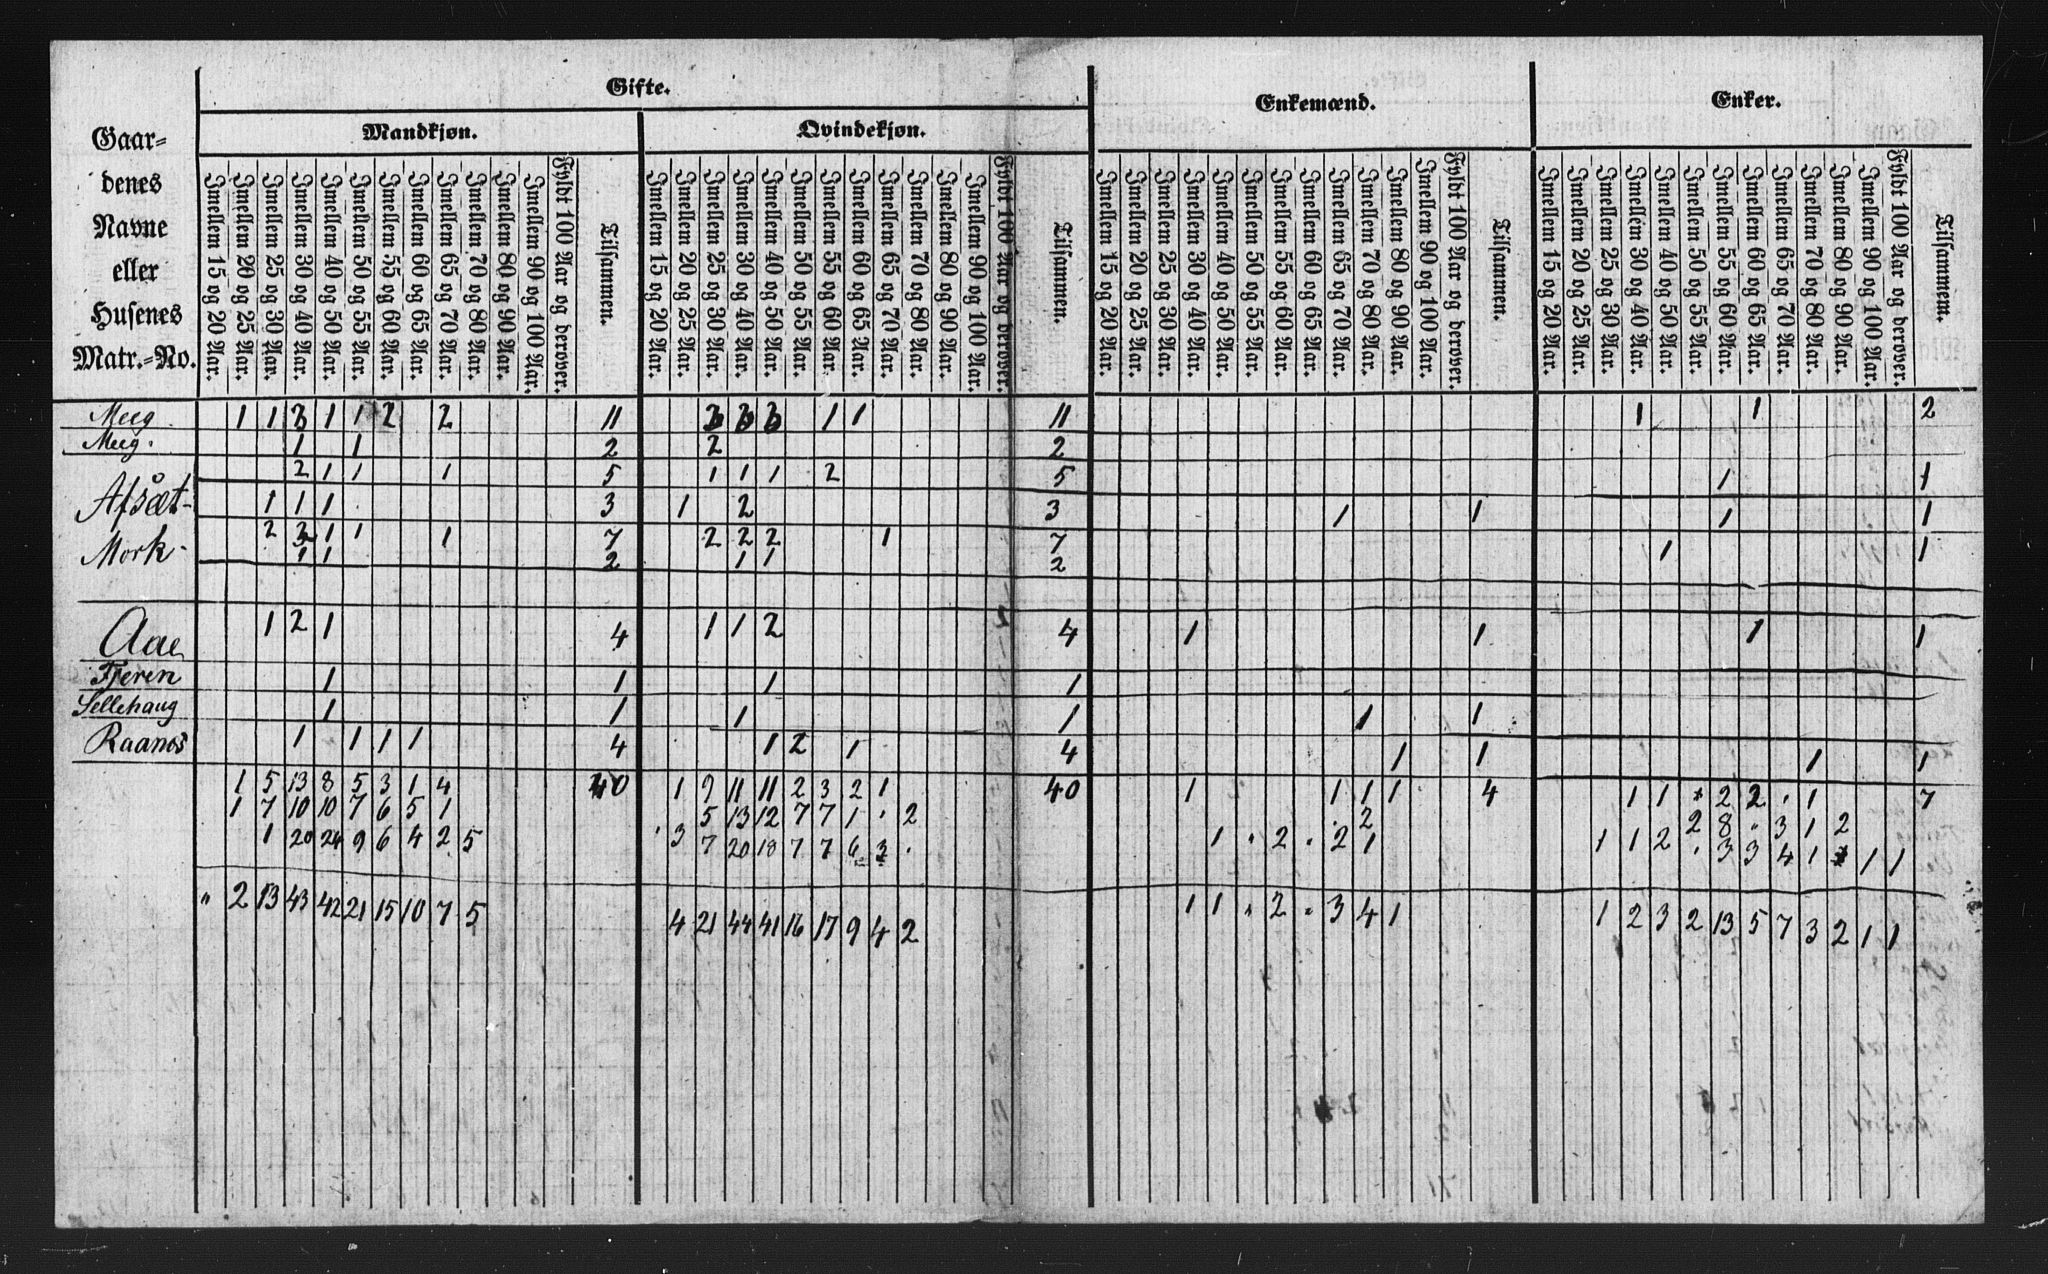 Gifte.
Enkemænd.
Enker.
Mandkjøn.
Qvindekjøn.
Gaar-
denes
Navne
eller
Husenes
Matr.-No.
Imellem 15 og 20 Aar. Imellem 20 og 25 Aar. Imellem 25 og 30 Aar. Imellem 30 og 40 Aar. Imellem 40 og 50 Aar. Imellem 50 og 55 Aar. Imellem 55 og 60 Aar. Imellem 60 og 65 Aar. Imellem 65 og 70 Aar. Imellem 70 og 80 Aar. Imellem 80 og 90 Aar. Imellem 90 og 100 Aar. Fyldt 100 Aar og derover. Tilsammen.
Imellem 15 og 20 Aar. Imellem 20 og 25 Aar. Imellem 25 og 30 Aar. Imellem 30 og 40 Aar. Imellem 40 og 50 Aar. Imellem 50 og 55 Aar. Imellem 55 og 60 Aar. Imellem 60 og 65 Aar. Imellem 65 og 70 Aar. Imellem 70 og 80 Aar. Imellem 80 og 90 Aar. Imellem 90 og 100 Aar. Fyldt 100 Aar og derover. Tilsammen.
Imellem 15 og 20 Aar. Imellem 20 og 25 Aar. Imellem 25 og 30 Aar. Imellem 30 og 40 Aar. Imellem 40 og 50 Aar. Imellem 50 og 55 Aar. Imellem 55 og 60 Aar. Imellem 60 og 65 Aar. Imellem 65 og 70 Aar. Imellem 70 og 80 Aar. Imellem 80 og 90 Aar. Imellem 90 og 100 Aar. Fyldt 100 Aar og derover. Tilsammen.
Imellem 15 og 20 Aar. Imellem 20 og 25 Aar. Imellem 25 og 30 Aar. Imellem 30 og 40 Aar. Imellem 40 og 50 Aar. Imellem 50 og 55 Aar. Imellem 55 og 60 Aar. Imellem 60 og 65 Aar. Imellem 65 og 70 Aar. Imellem 70 og 80 Aar. Imellem 80 og 90 Aar. Imellem 90 og 100 Aar. Fyldt 100 Aar og derover. Tilsammen.
Meeg 1 1 3 1 1 2 2 11 3 3 3 1 1 11 1 1 2
Meeg. 1 1 2 2 2
2 1 1 1 5 1 1 1 2 5 1 1
Afsæt- 1 1 1 3 1 2 3 1 1 1 1
2 2 1 1 1 7 2 2 2 1 7
Mork- 1 1 2 1 1 2 1 1
Aae 1 2 1 4 1 1 2 4 1 1 1 1
Fjeren 1 1 1 1
Sellehaug 1 1 1 1 1 1
Raanos 1 1 1 1 4 1 2 1 4 1 1 1 1
1 5 13 8 5 3 1 4 40 1 9 11 11 2 3 2 1 40 1 1 1 1 4 1 1 2 2 . 1 7
1 7 10 10 7 6 5 1 5 13 12 7 7 1 . 2 . 2 2 8 " 3 1 2
1 20 24 9 6 4 2 5 3 7 20 18 7 7 6 3 . 1 " 2 " 2 1 1 1 2 . 3 3 4 1 1 1
" 2 13 43 42 21 15 10 7 5 4 21 44 41 16 17 9 4 2 1 1 " 2 " 3 4 1 1 2 3 2 13 5 7 3 2 1 1